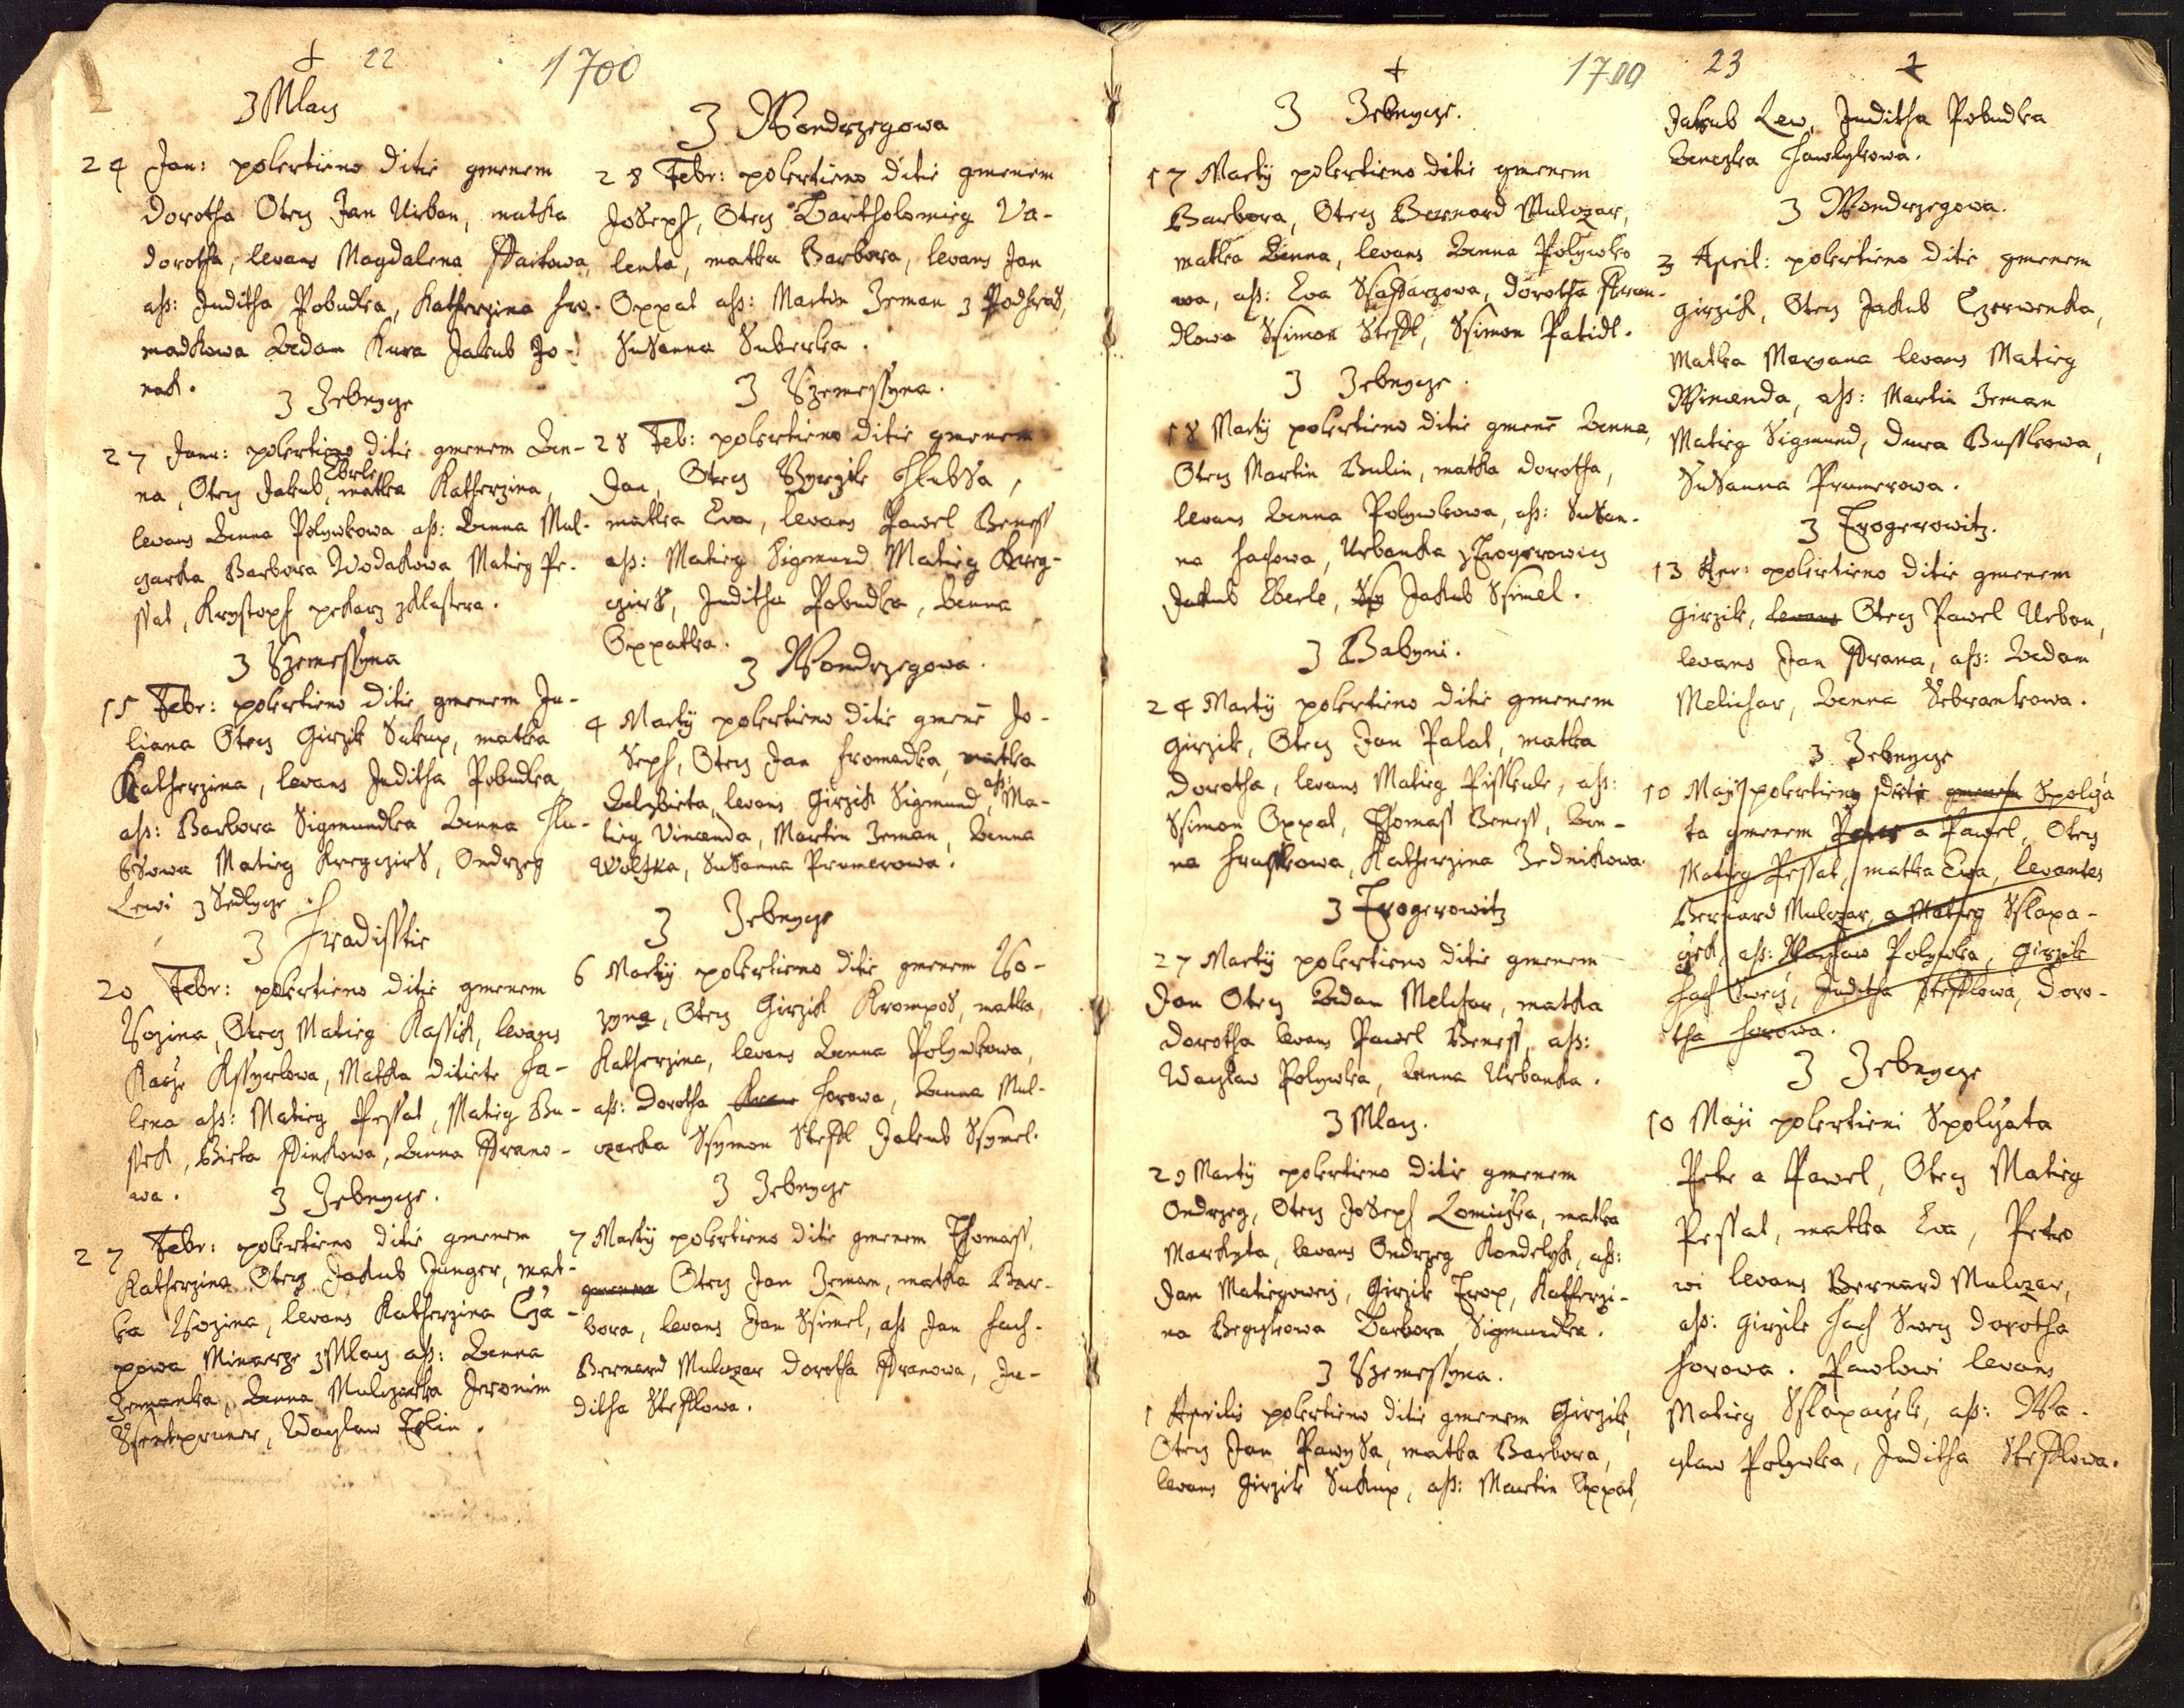 22
1700
Z Mlacz
24 Jan: pokrtieno ditie gmenem
dorotha Otecz Jan Urban, matka
dorotha, levans Magdalena
aſs: Juditha Pobudka, Katherzina Hro-
madkowa Adam Kura Jakub Jo-
nak.
Z Zebnycze
27 Janu: pokrtieno ditie gmenem An-
na, Otecz Jakub Eberle, matka Katherzina,
levans Anna Polywkowa aſs: Anna Mul-
czarka Barbora Wodakowa Matieg Pe-
ssat, Krystoph pekarz z klastera.
Z Czemessyna
15 Febr: pokrtieno ditie gmenem Ju-
liana Otecz Girzik Sukup, matka
Katherzina, levans Juditha Pobudka
aſs: Barbora Sigmundka Anna Hlu-
bsowa Matieg Kregczirs, Ondrzeg
Lewi z Sedlycze
Z Hradisstie
20 Febr: pokrtieno ditie gmenem
Rozina, Otecz Matieg Kassik, levans
Kacze Kssyrlowa, Matka ditiete Ha-
lena aſs: Matieg Pessat, Matieg Bu-
ssek, Bieta Ffinkowa, Anna Ffrano-
wa.
Z Zebnycze.
27 Febr: pokrtieno ditie gmenem
Katherzina Otecz Jakub Junger, mat-
ka Rozina, levans Katherzina Cza-
powa Minarze z Mlacz aſs: Anna
Zemanka, Anna Mulczarka Jeronim
Waczlaw
Z Wondrzegowa
28 Febr: pokrtieno ditie gmenem
Joseph, Otecz Bartholomieg Va-
lenta, matka Barbora, levans Jan
Oppat aſs: Martin Zeman z Podhras,
Susanna Suberka.
Z Czemessyna.
28 Feb: pokrtieno ditie gmenem
Jan, Otecz Hlubsa,
matka Eva, levans Pawel Beness
aſs: Matieg Sigmund Matieg Kreg-
czirs, Juditha Pobudka, Anna
Oppatka.
Z Wondrzegowa.
4 Martÿ pokrtieno ditie gmenē Jo-
seph, Otecz Jan Hromadka, matka
Alzbieta, levans Girzik Sigmund, aſs: Ma-
tieg Vimanda, Martin Zeman, Anna
Wolfka, Susanna Prumerowa.
Z Zebnycze
6 Martÿ pokrtieno ditie gmenem Ro-
zyna, Otecz Girzik Krompos, matka,
Katherzina, levans Anna Polywkowa,
aſs: Dorotha Horowa, Anna Mul-
czarka Ssymon Steffl Jakub Ssymel.
Z Zebnycze
7 Martÿ pokrtieno ditie gmenem Thomass,
gmenem Otecz Jan Zeman, matka Bar-
bora, levans Jan Ssimel, aſs Jan Hach-
Bernard Mulczar Dorotha Ffranowa, Ju-
ditha Stefflowa.
1700
23
Z Zebnycze.
17 Martÿ pokrtieno ditie gmenem
Barbora, Otecz Bernard Mulczar,
matka Anna, levans Anna Polywko
wa, aſs: Eva Ssaffarzowa, Dorotha
dlowa Ssimon Steffl, Ssimon Patidl.
Z Zebnycze.
18 Martÿ pokrtieno ditie gmenē Anna,
Otecz Martin Bulin, matka dorotha,
levans Anna Polywkowa, aſs: Susan-
na Hachowa, Urbanka z Trogerowicz
Jakub Eberle, Jakub Ssimel.
Z Babyni.
24 Martÿ pokrtieno ditie gmenem
Girzik, Otecz Jan Palat, matka
Dorotha, levans Matieg Pisskule, aſs:
Ssimon Oppat, Thomass Beness, An-
na Hrusskowa, Katherzina Zednikowa.
Z Trogerowitz
27 Martÿ pokrtieno ditie gmenem
Jan Otecz Adam Melichar, matka
Dorotha levans Pawel Beness, aſs:
Waczlaw Polywka, Anna Urbanka.
Z Mlacz.
29 Martÿ pokrtieno ditie gmenem
Ondrzeg, Otecz Joseph Lomiczka, matka
Markyta, levans Ondrzeg Kondelyk, aſs:
Jan Matiegowicz, Girzik Trop, Katherzi-
na Barbora Sigmundka.
Z Czemessyna.
1 Aprilis pokrtieno ditie gmenem Girzik,
Otecz Jan Pawysa, matka Barbora,
levans Girzik Sukup, aſs: Martin Oppat,
Jakub Lew, Juditha Pobudka
Anezka Hawlykowa.
Z Wondrzegowa.
3 April: pokrtieno ditie gmenem
Girzik, Otecz Jakub Czerwenka,
Matka Maryana levans Matieg
Wimenda, aſs: Martin Zeman
Matieg Sigmund, Dura Busskowa,
Susanna Prumerowa.
Z Trogerowitz.
13 Apr: pokrtieno ditie gmenem
Girzik, levans Otecz Pawel Urban,
levans Jan Ffrana, aſs: Adam
Melichar, Anna Sebrankowa.
Z Zebnycze
10 Maji pokrtieny ditie gmenem Spolycza
ta gmenem Peter a Pawel, Otecz
Matieg Pessat, matka Eva, levantes
Bernard Mulczar, a Matieg Sslapa-
czek, aſs: Waczlaw Polywka, Girzik
Hach Swecz, Juditha Stefflowa, Doro-
tha Horowa.
Z Zebnycze
10 Maji pokrtieni Spolyczata
Petr a Pawel, Otecz Matieg
Pessat, matka Eva, Petro
wi levans Bernard Mulczar,
aſs: Girzik Hach Swecz Dorotha
Horowa. Pawlowi levans
Matieg Sslapaczek, aſs: Wa-
czlaw Polywka, Juditha Stefflowa.